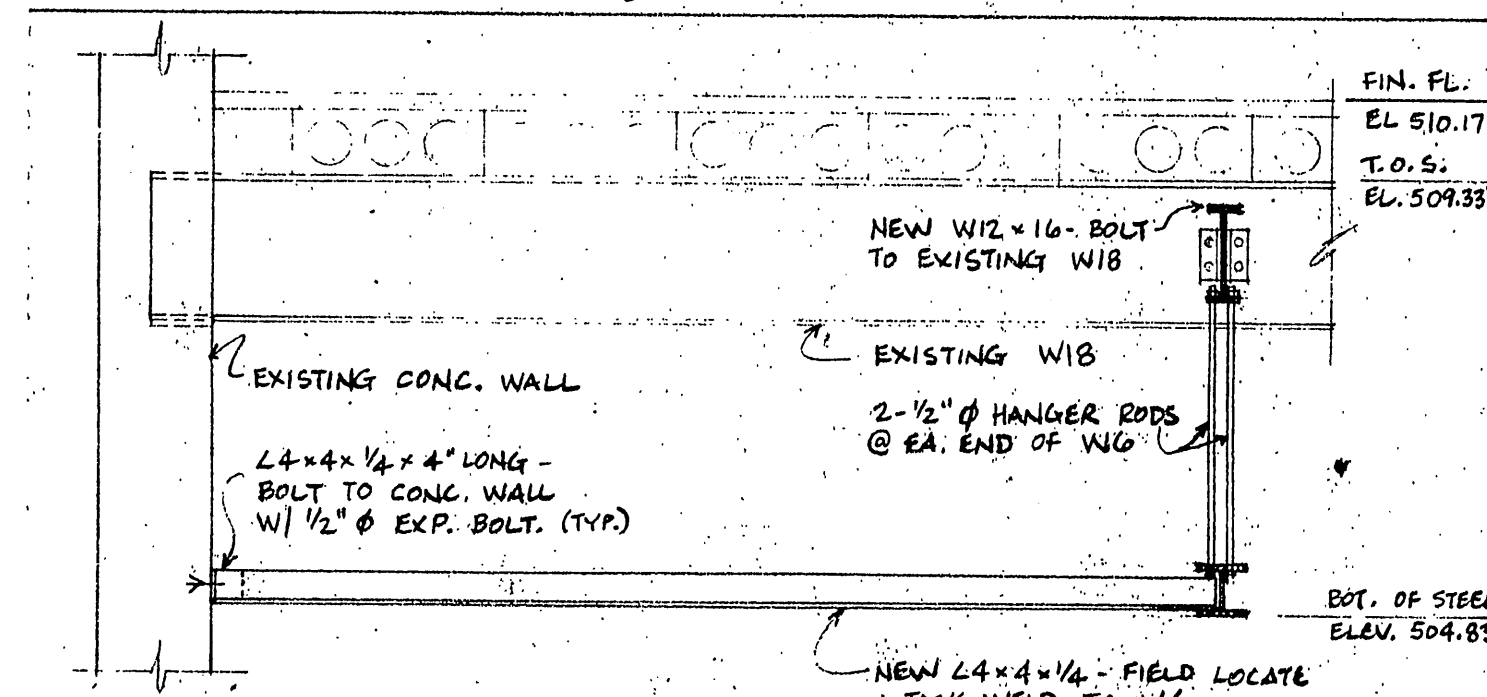 FIN. FL.
EL 510.17
T.O.S.
EL. 509.33'
NEW W12 x 16 - BOLT
TO EXISTING W18
EXISTING W18
EXISTING CONC. WALL
2-1/2" Ø HANGER RODS
@ EA. END OF W6
L4x4x1/4 x 4" LONG -
BOLT TO CONC. WALL
W/ 1/2" Ø EXP. BOLT. (TYP.)
BOT. OF STEEL
ELEV. 504.83
NEW L4x4x1/4 - FIELD LOCATE